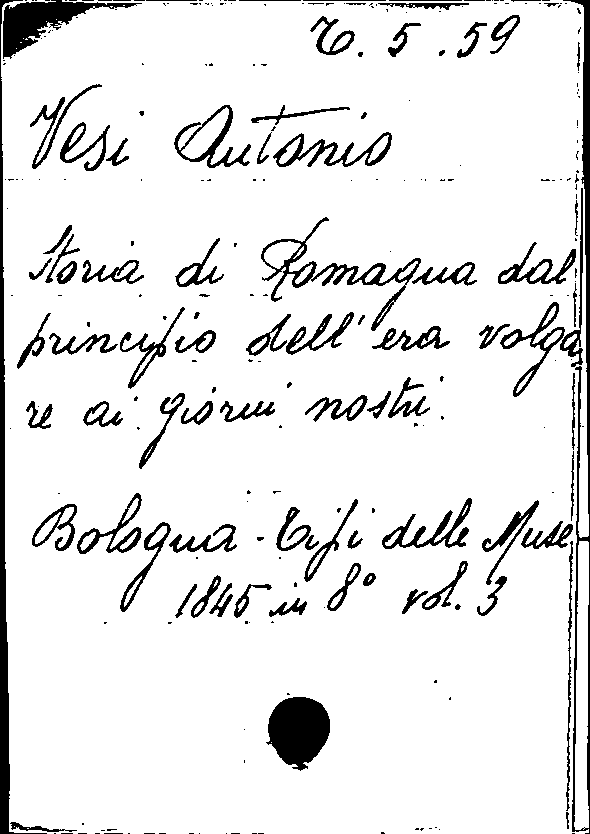 T. 5. 59
Vesi Antonio
Storia di Romagna dal
principio dell'era volga
re ai giorni nostri.
Bologna - Tipi delle Muse
1845 in 8° vol. 3